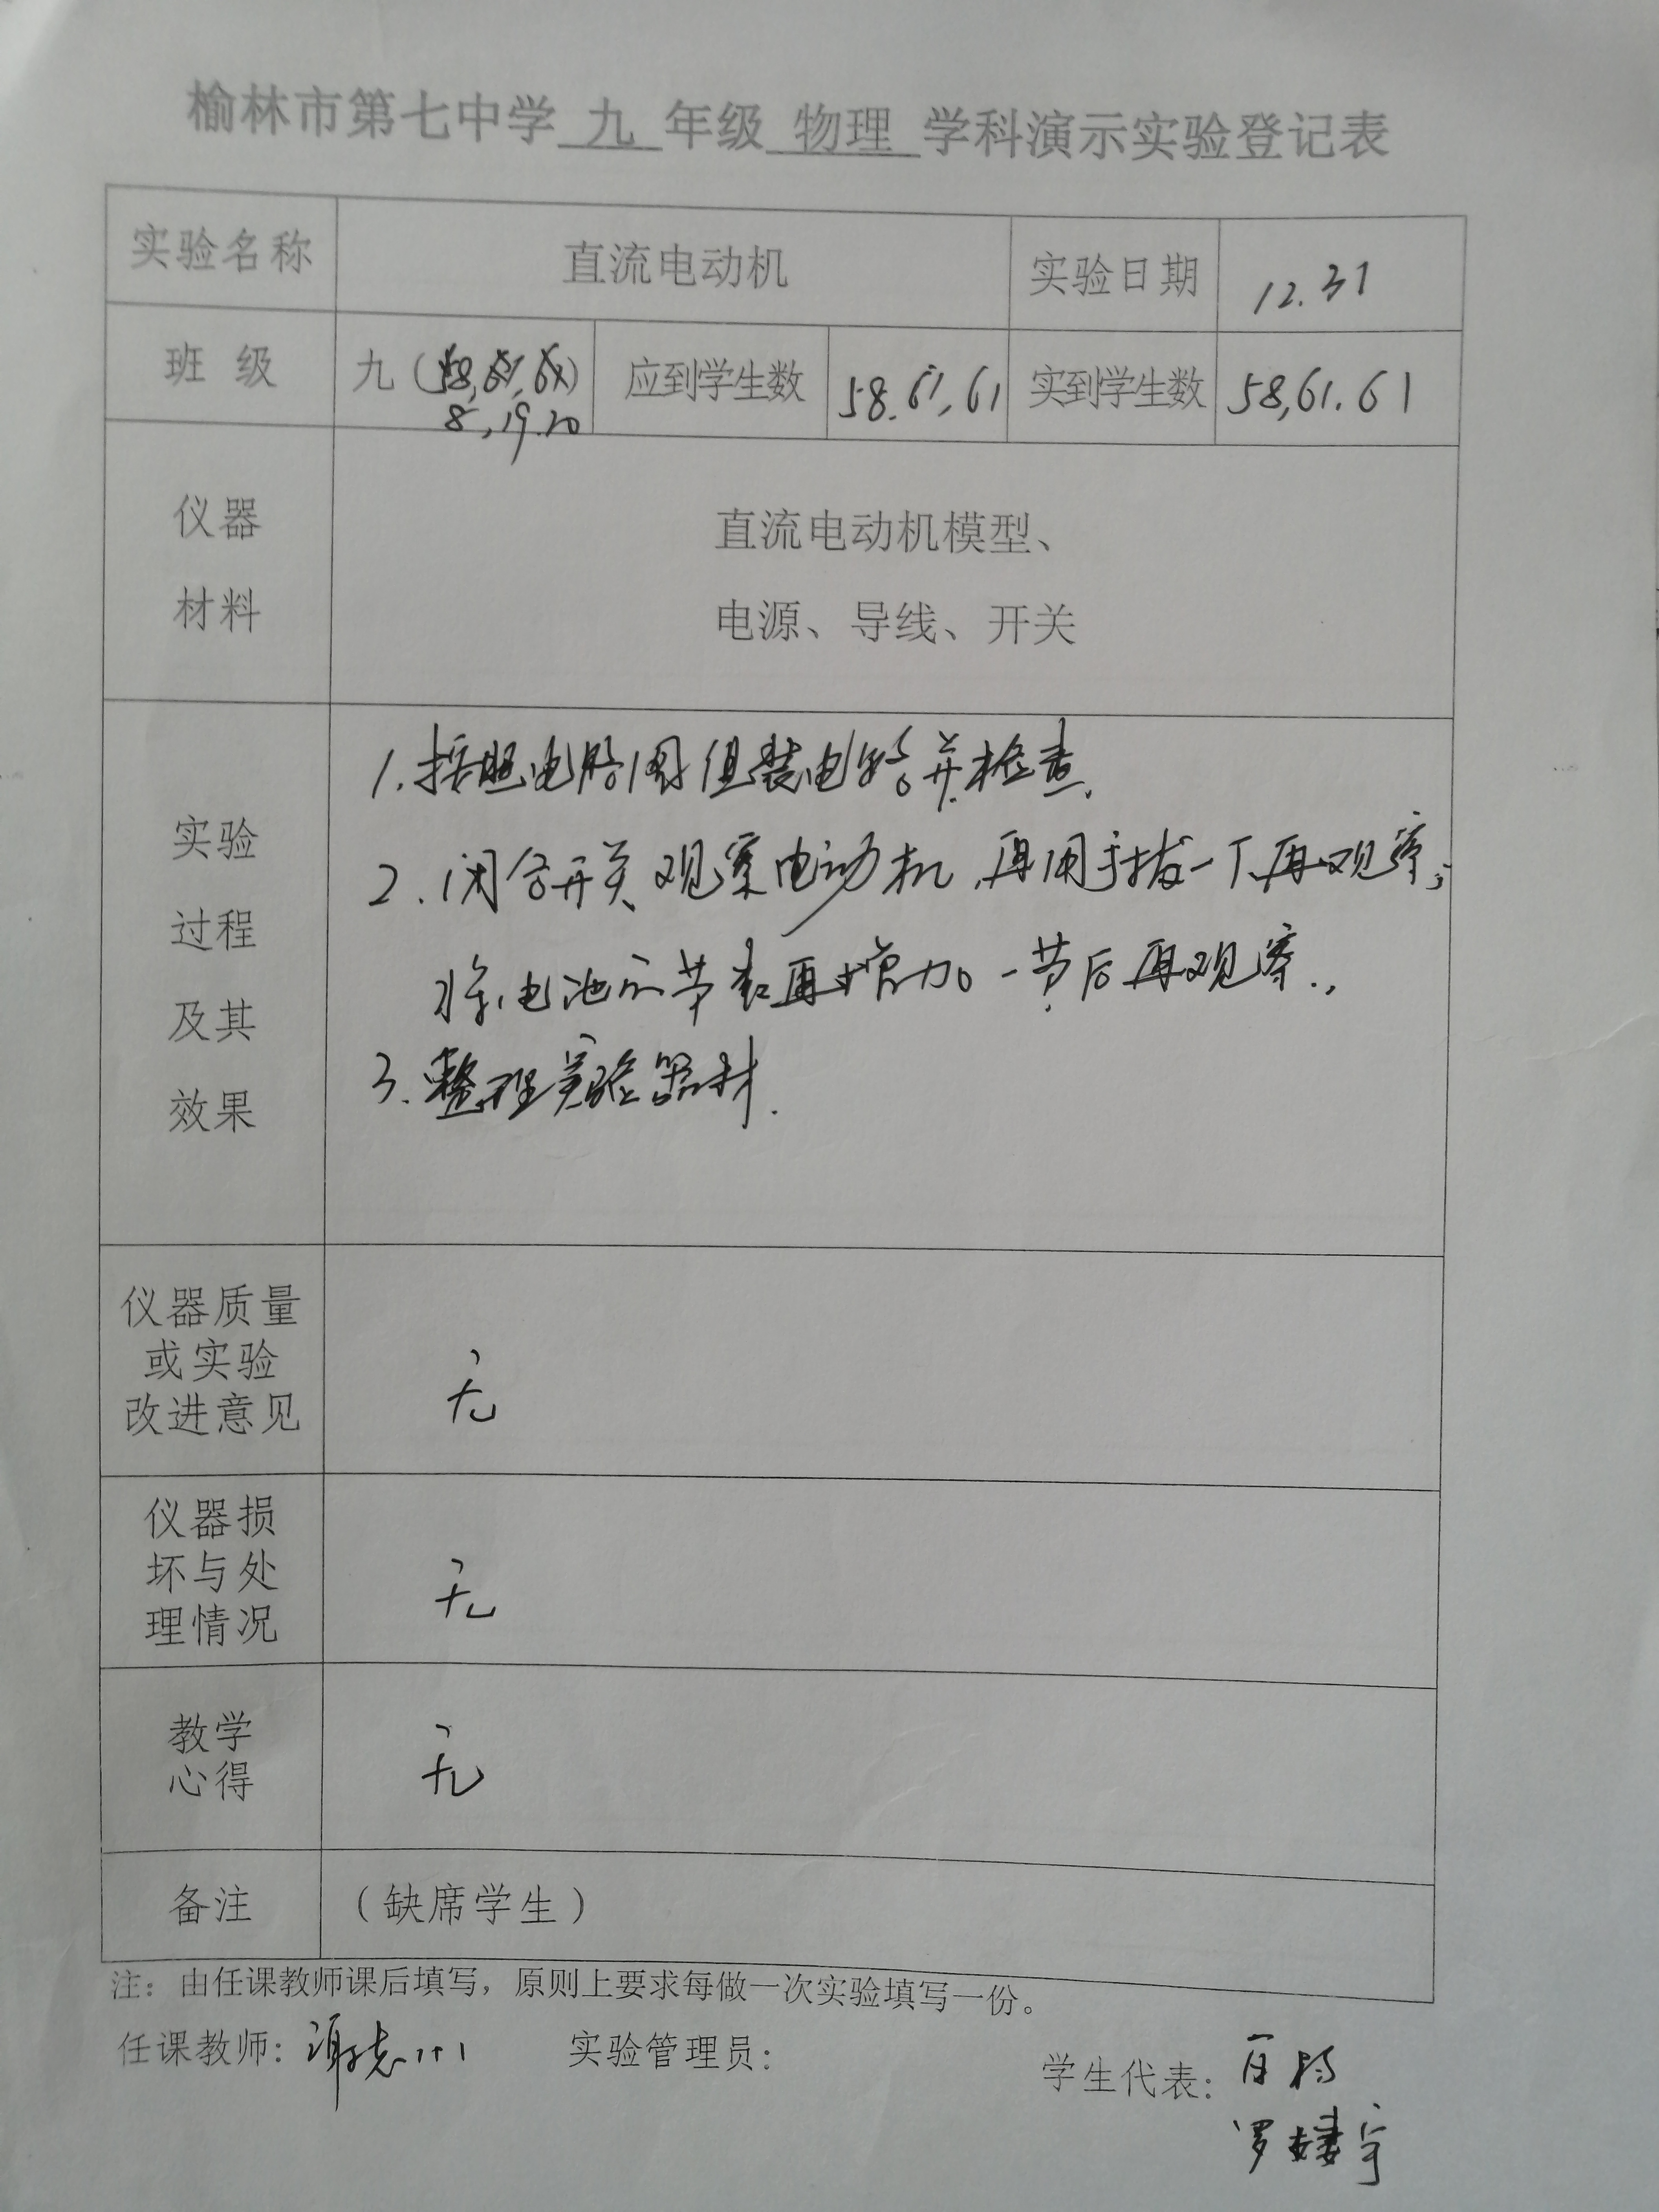 榆林市第七中学 九 年级 物理 学科演示实验登记表
实验名称 直流电动机 实验日期 12.31
班 级 九( ) 应到学生数 58.61,61 实到学生数 58,61.61
8,19.20
仪器
材料
直流电动机模型、
电源、导线、开关
实验
过程
及其
效果
1.按照电路图组装电路并检查.
2.闭合开关观察电动机,再用手拨一下再观察;
将电池的节数再增加一节后再观察.
3.整理实验器材.
仪器质量
或实验
改进意见
无
仪器损
坏与处
理情况
无
教学
心得
无
备注 (缺席学生)
注:由任课教师课后填写,原则上要求每做一次实验填写一份。
任课教师:谢志 实验管理员: 学生代表:
罗 宇